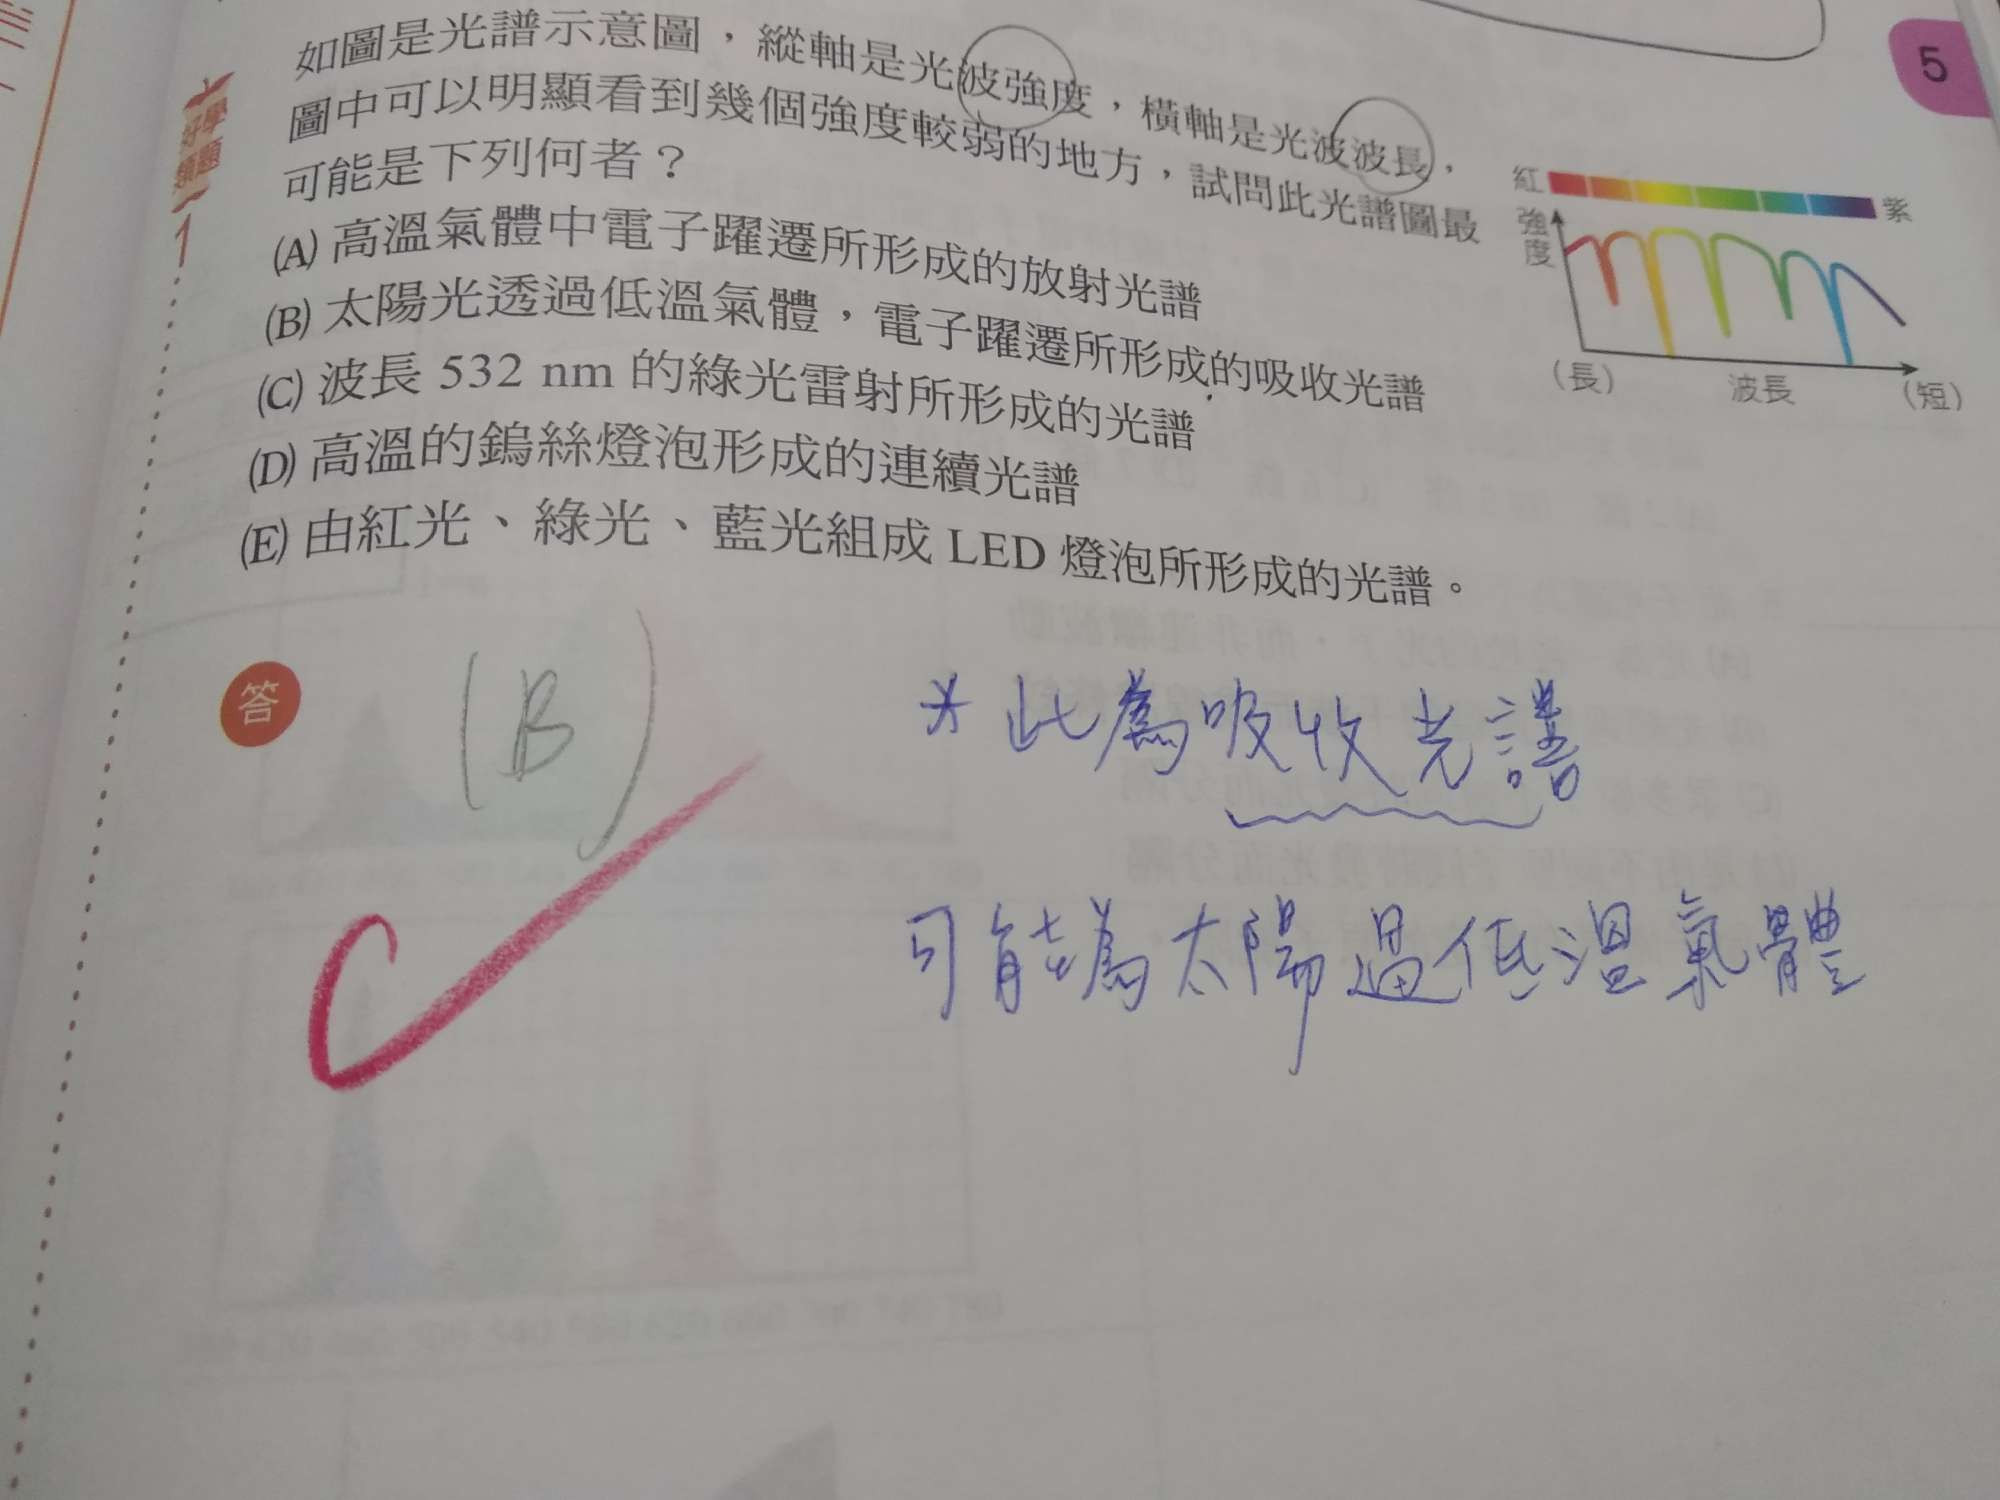 5
如圖是光譜示意圖，縱軸是光波強度，橫軸是光波波長，
圖中可以明顯看到幾個強度較弱的地方，試問此光譜圖最
可能是下列何者？
(A) 高溫氣體中電子躍遷所形成的放射光譜
(B) 太陽光透過低溫氣體，電子躍遷所形成的吸收光譜
(C) 波長 532 nm 的綠光雷射所形成的光譜
(D) 高溫的鎢絲燈泡形成的連續光譜
(E) 由紅光、綠光、藍光組成 LED 燈泡所形成的光譜。
1
紅 紫
強度
(長) 波長 (短)
答
(B)
※此為吸收光譜
可能為太陽過低溫氣體